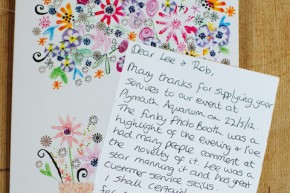 Dear Lee & Rob,
Many thanks for supplying your
services to our event at
Plymouth Aquarium on 22/5/12.
The funky Photo Booth was a
highlight of the evening & I've
had many people comment at
the novelty of it. Lee was a
star manning it and had great
customer service skills.
I shall certainly
for